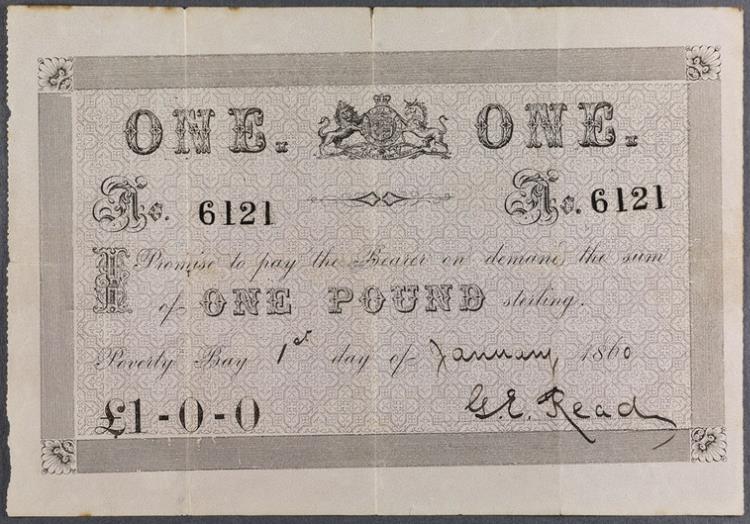 ONE. ONE.
No. 6121 No. 6121
I Promise to pay the Bearer on demand the sum
of ONE POUND sterling.
Poverty Bay 1st day of January 1860
£1-0-0 G.E. Read